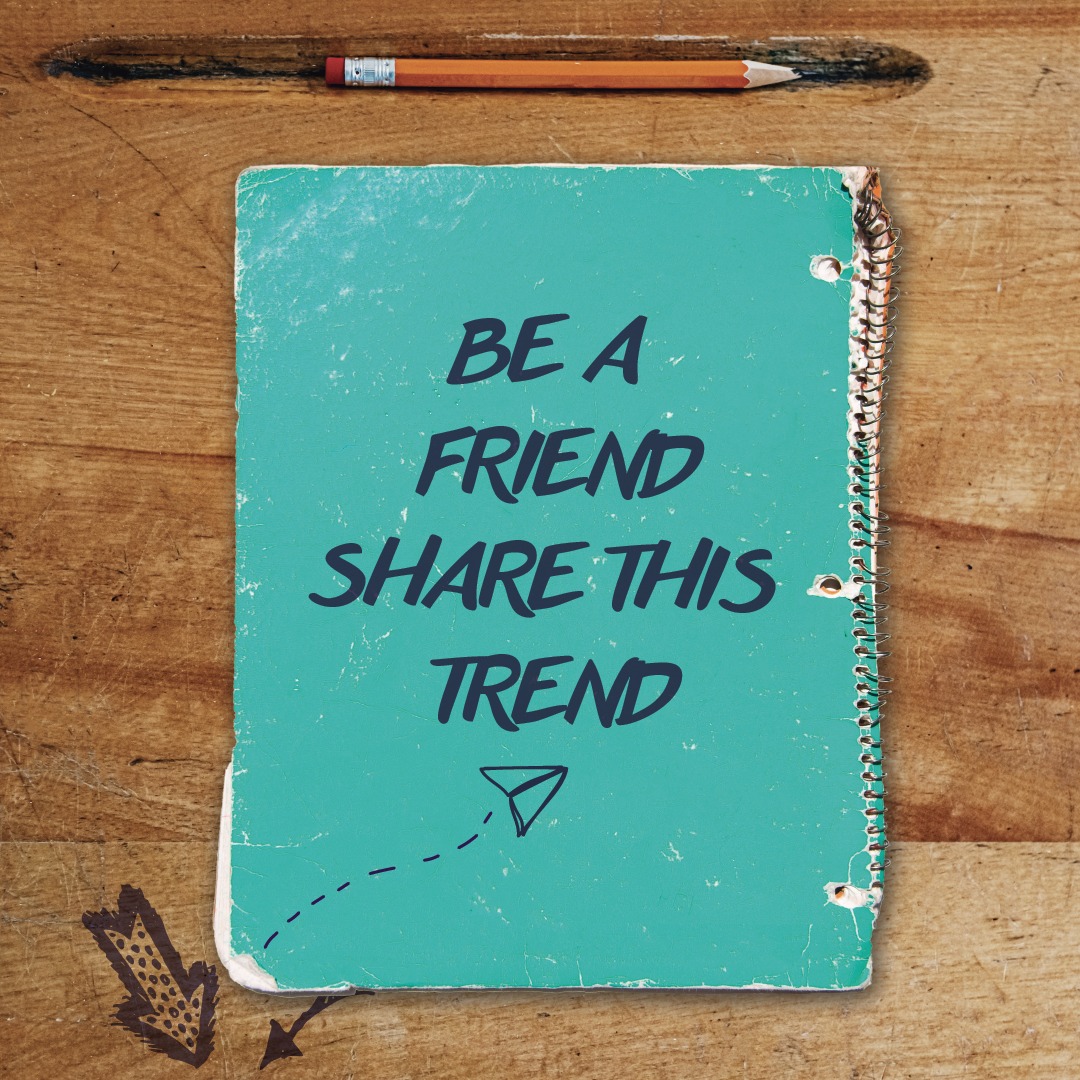 BE A
FRIEND
SHARE THIS
TREND